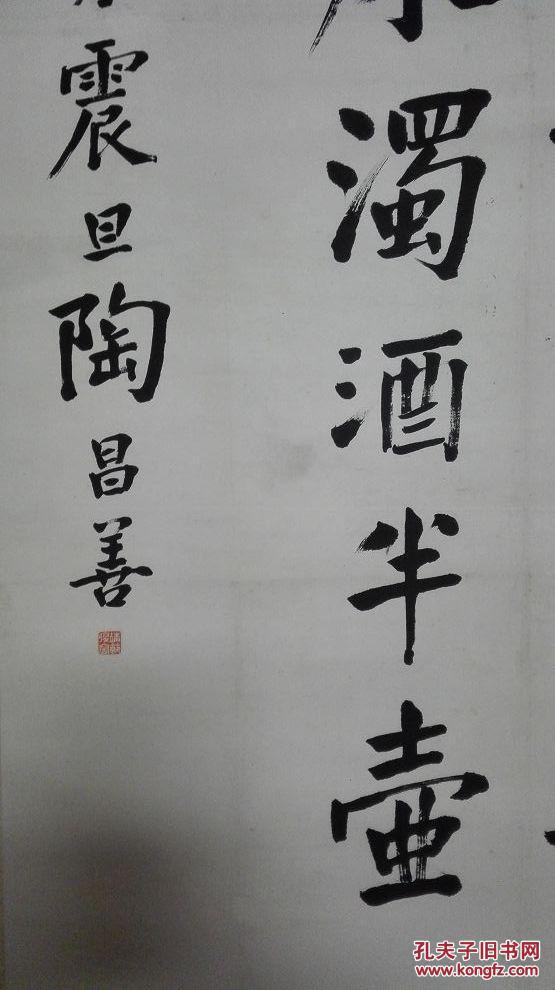 濁酒半壺
震旦陶昌善
孔夫子旧书网
www.kongfz.com